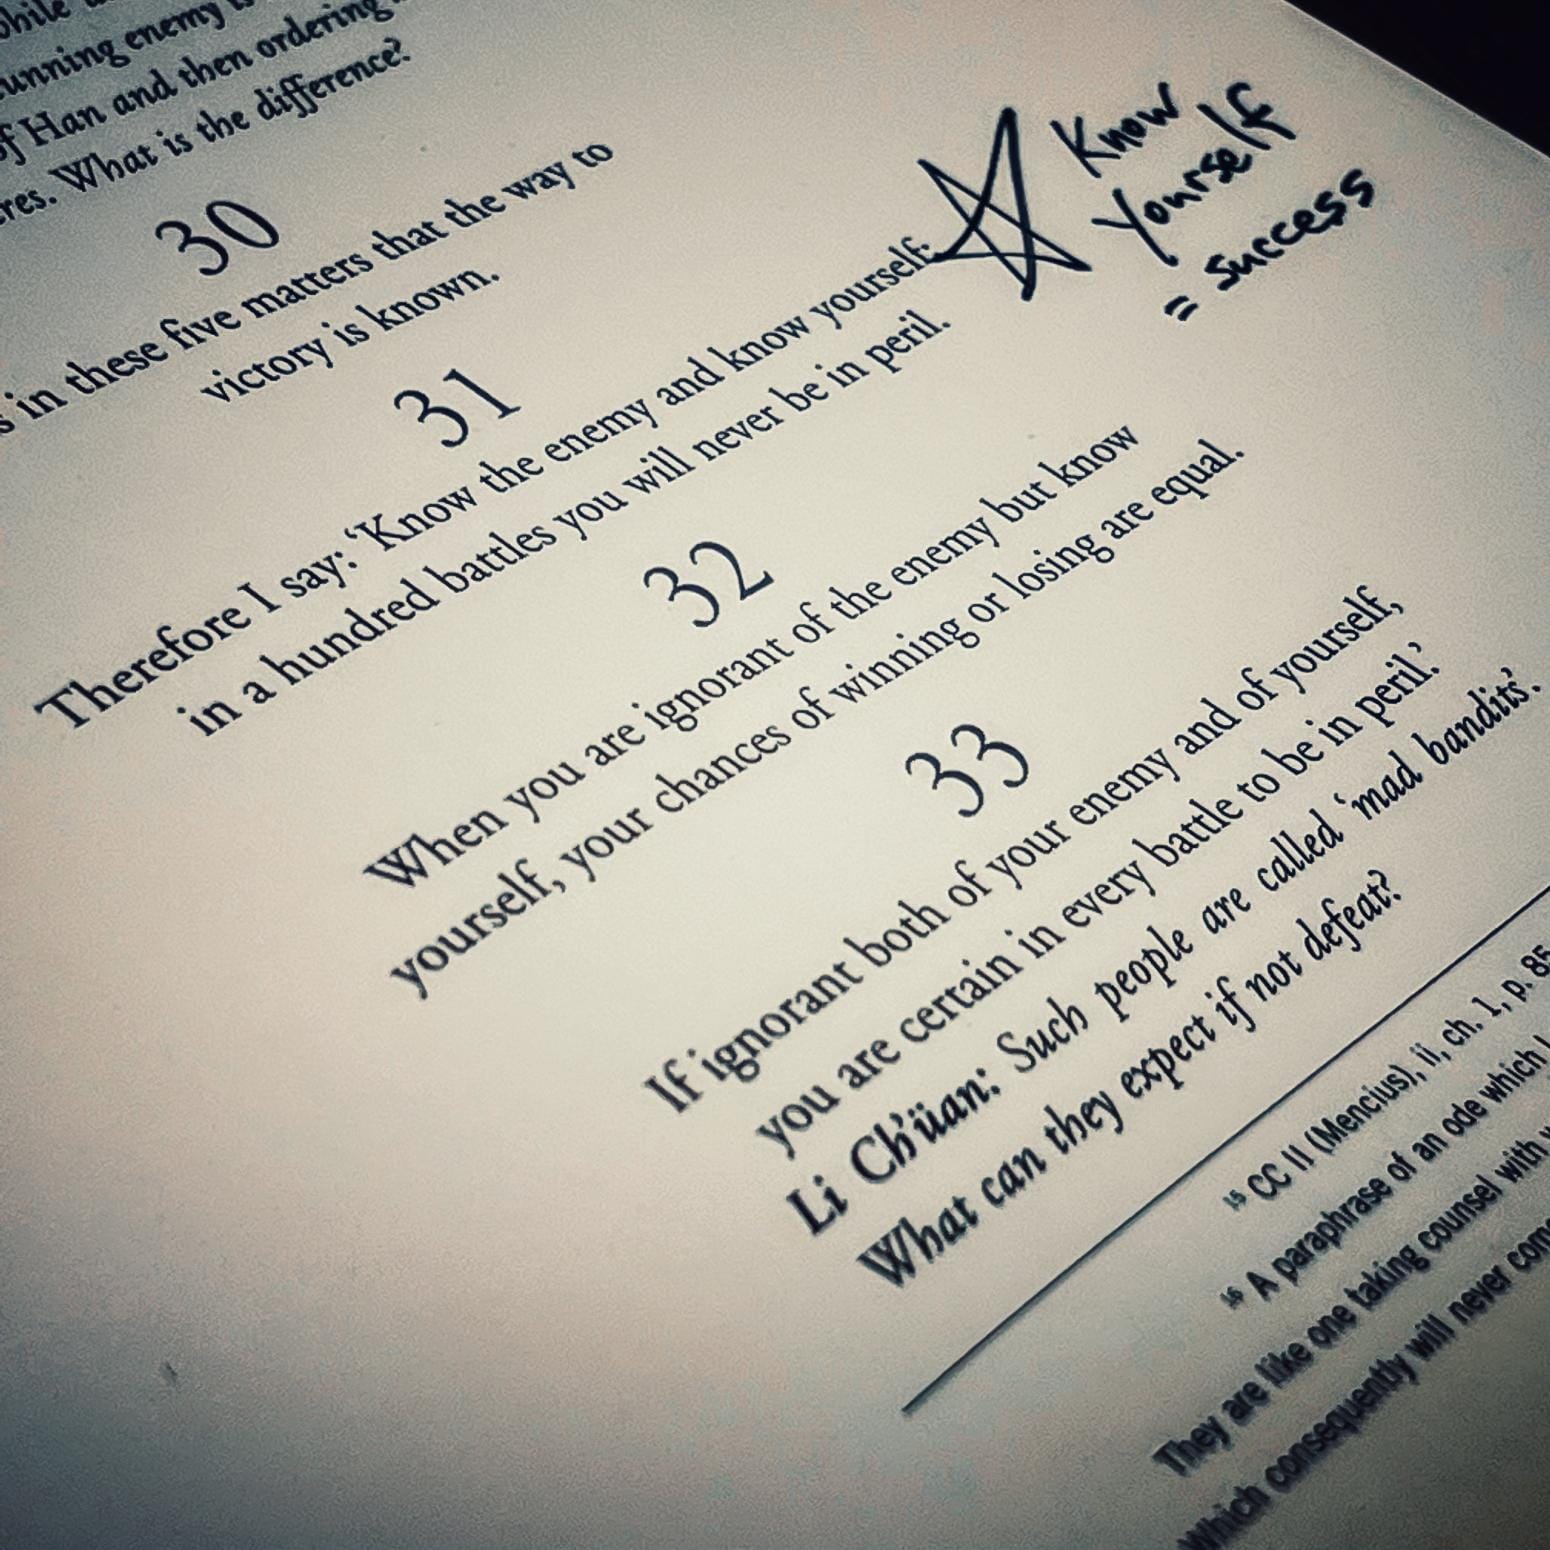 unning enemy
of Han and then ordering
res. What is the difference?
30
in these five matters that the way to
victory is known.
31
Therefore I say: ‘Know the enemy and know yourself;
in a hundred battles you will never be in peril.
Know
Yourself
= success
32
When you are ignorant of the enemy but know
yourself, your chances of winning or losing are equal.
33
If ignorant both of your enemy and of yourself,
you are certain in every battle to be in peril.’
Li Ch’üan: Such people are called ‘mad bandits’.
What can they expect if not defeat?
15 CC II (Mencius), ii, ch. 1, p. 85
16 A paraphrase of an ode which
They are like one taking counsel with
Which consequently will never com